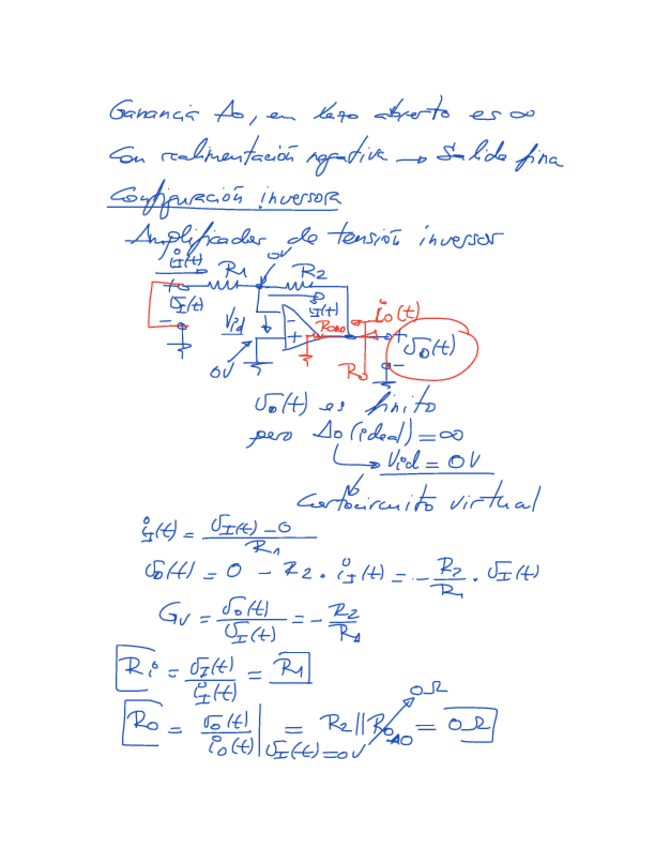 Ganancia Ao, en lazo abierto es ∞
Con realimentación negativa → Salida fina
Configuración inversor
Amplificador de tensión inversor
iI(t) R1 0V R2
+ vI(t) -
Vid iI(t) ROAO io(t)
- +
0V Ro + vo(t) -
vo(t) es finito
pero Ao(ideal) = ∞
→ Vid = 0V
Cortocircuito virtual
iI(t) = (vI(t) - 0) / R1
vo(t) = 0 - R2 · iI(t) = - R2/R1 · vI(t)
Gv = vo(t)/vI(t) = - R2/R1
Ri = vI(t)/iI(t) = R1
0Ω
Ro = vo(t)/io(t) | vI(t)=0V = R2 || RoAO = 0Ω